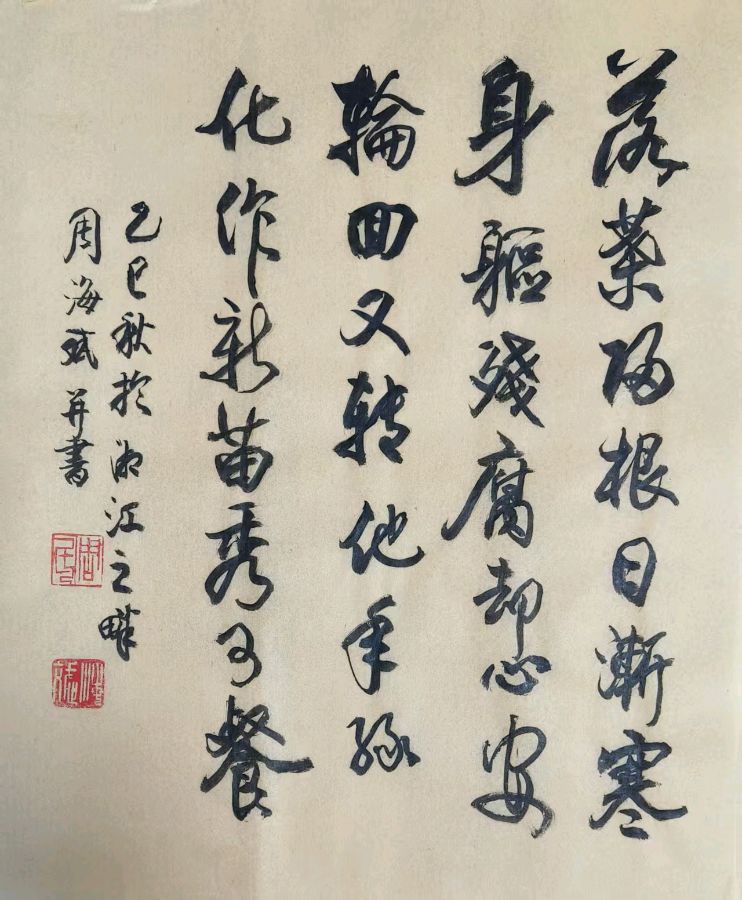 落葉歸根日漸寒
身軀殘腐却心安
輪回又转他年緣
化作新苗秀可餐
乙巳秋於湘江之畔
周海斌并書